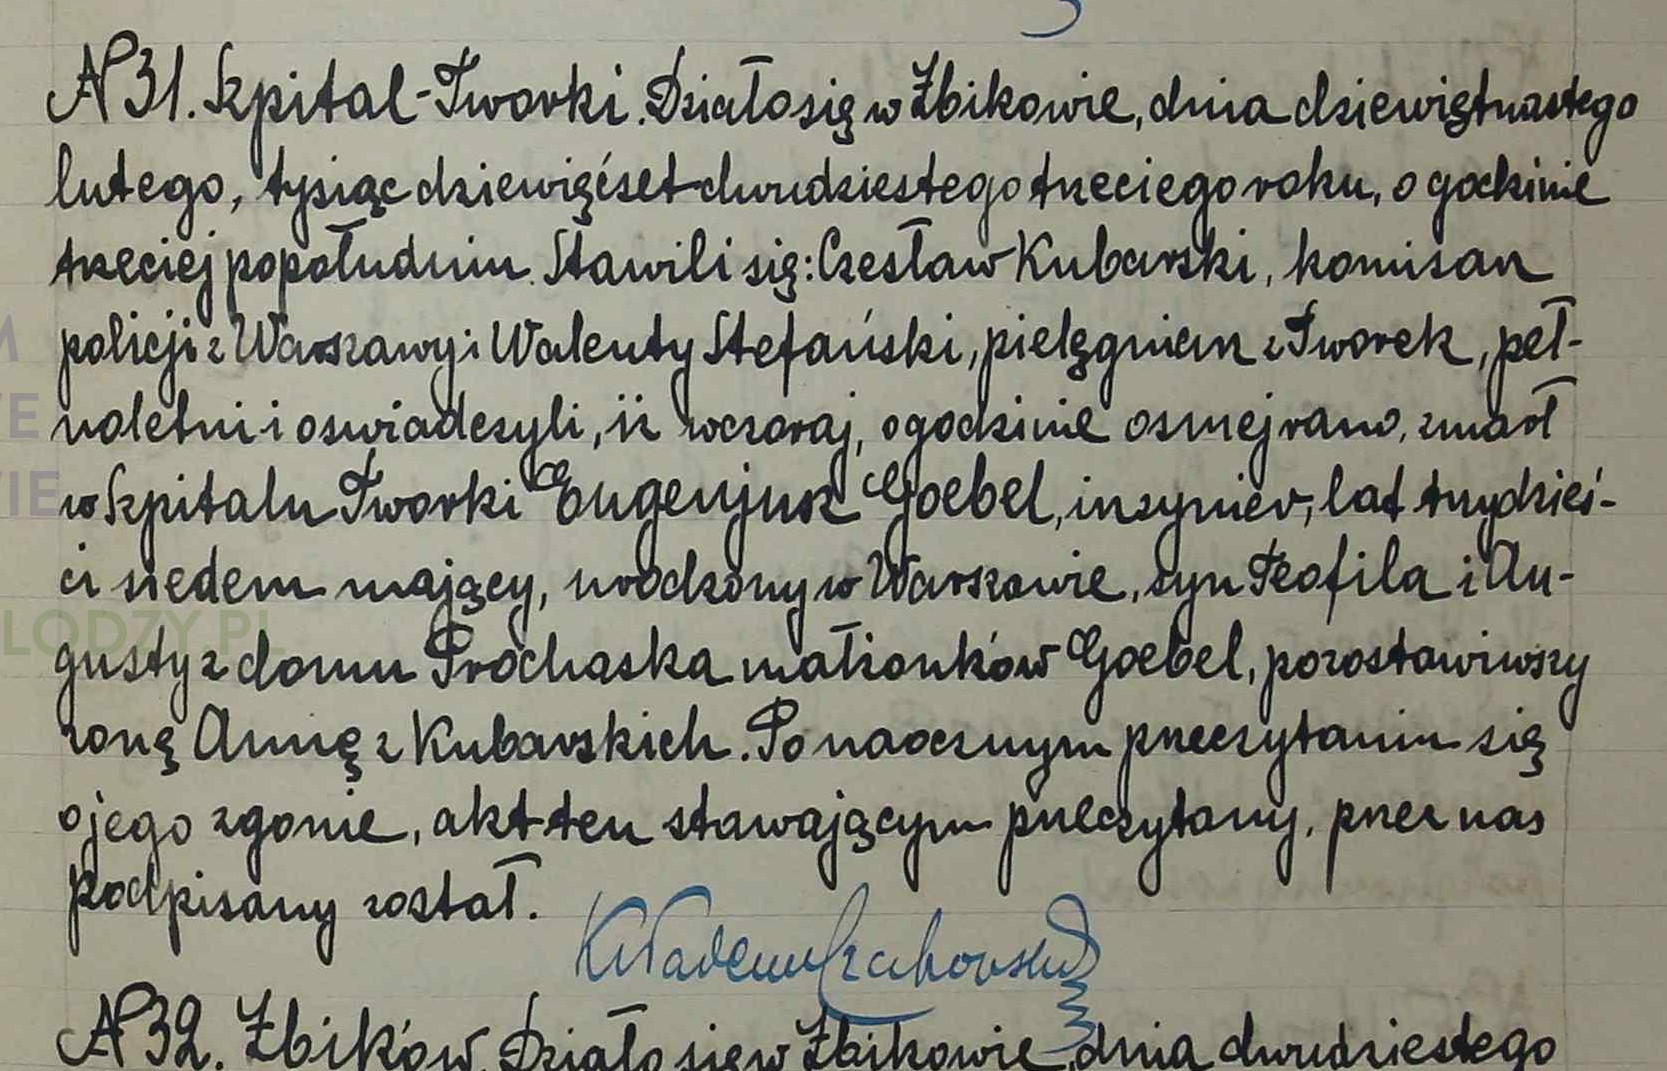 № 31. Szpital-Tworki. Działo się w Żbikowie, dnia dziewiętnastego
lutego, tysiąc dziewięćset dwudziestego trzeciego roku, o godzinie
trzeciej popołudniu. Stawili się: Czesław Kubarski, komisarz
policji z Warszawy i Walenty Stefański, pielęgniarz z Tworek, peł-
noletni i oświadczyli, iż wczoraj, o godzinie osmej rano, zmarł
w Szpitalu Tworki Eugenjusz Goebel, inżynier, lat trzydzieś-
ci siedem mający, urodzony w Warszawie, syn Teofila i Au-
gusty z domu Prochaska małżonków Goebel, pozostawiwszy
żonę Annę z Kubarskich. Po naocznym przeczytaniu się
o jego zgonie, akt ten stawającym przeczytany, przez nas
podpisany został.
№ 32. Żbików. Działo się w Żbikowie, dnia dwudziestego
LODZY.PL